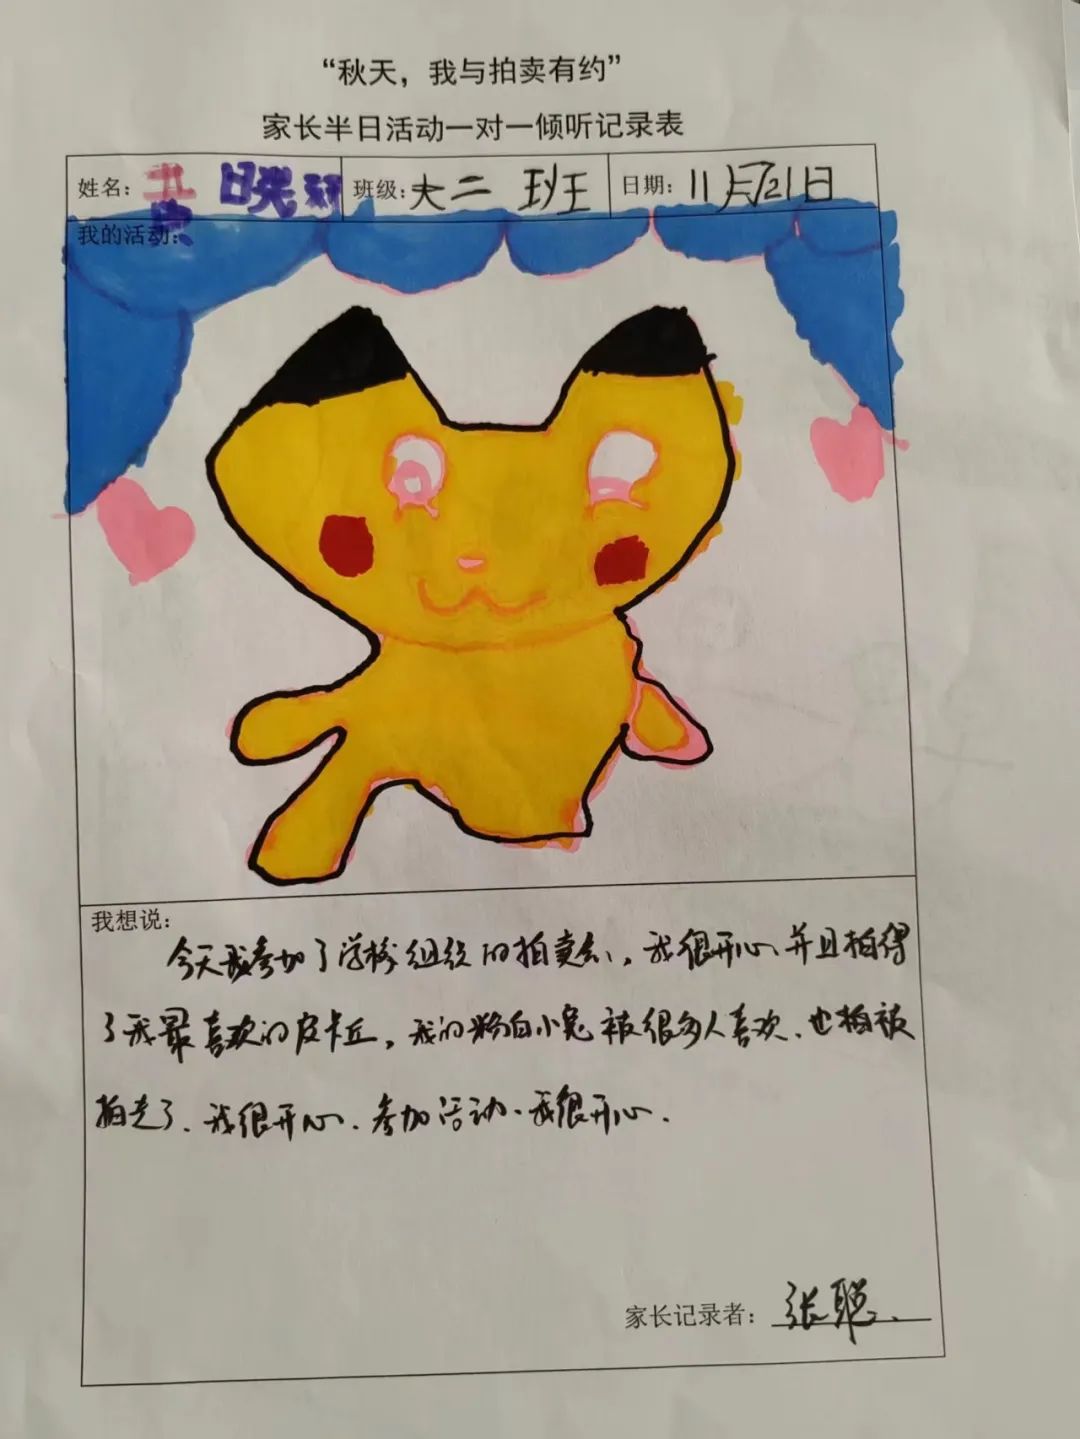 “秋天，我与拍卖有约”
家长半日活动一对一倾听记录表
姓名： 班级：大二班 日期：11月21日
我的活动：
我想说：
今天我参加了学校组织的拍卖会，我很开心、并且拍得
了我最喜欢的皮卡丘，我的粉白小兔被很多人喜欢、也拍被
拍走了、我很开心．参加活动、我很开心．
家长记录者：张聪